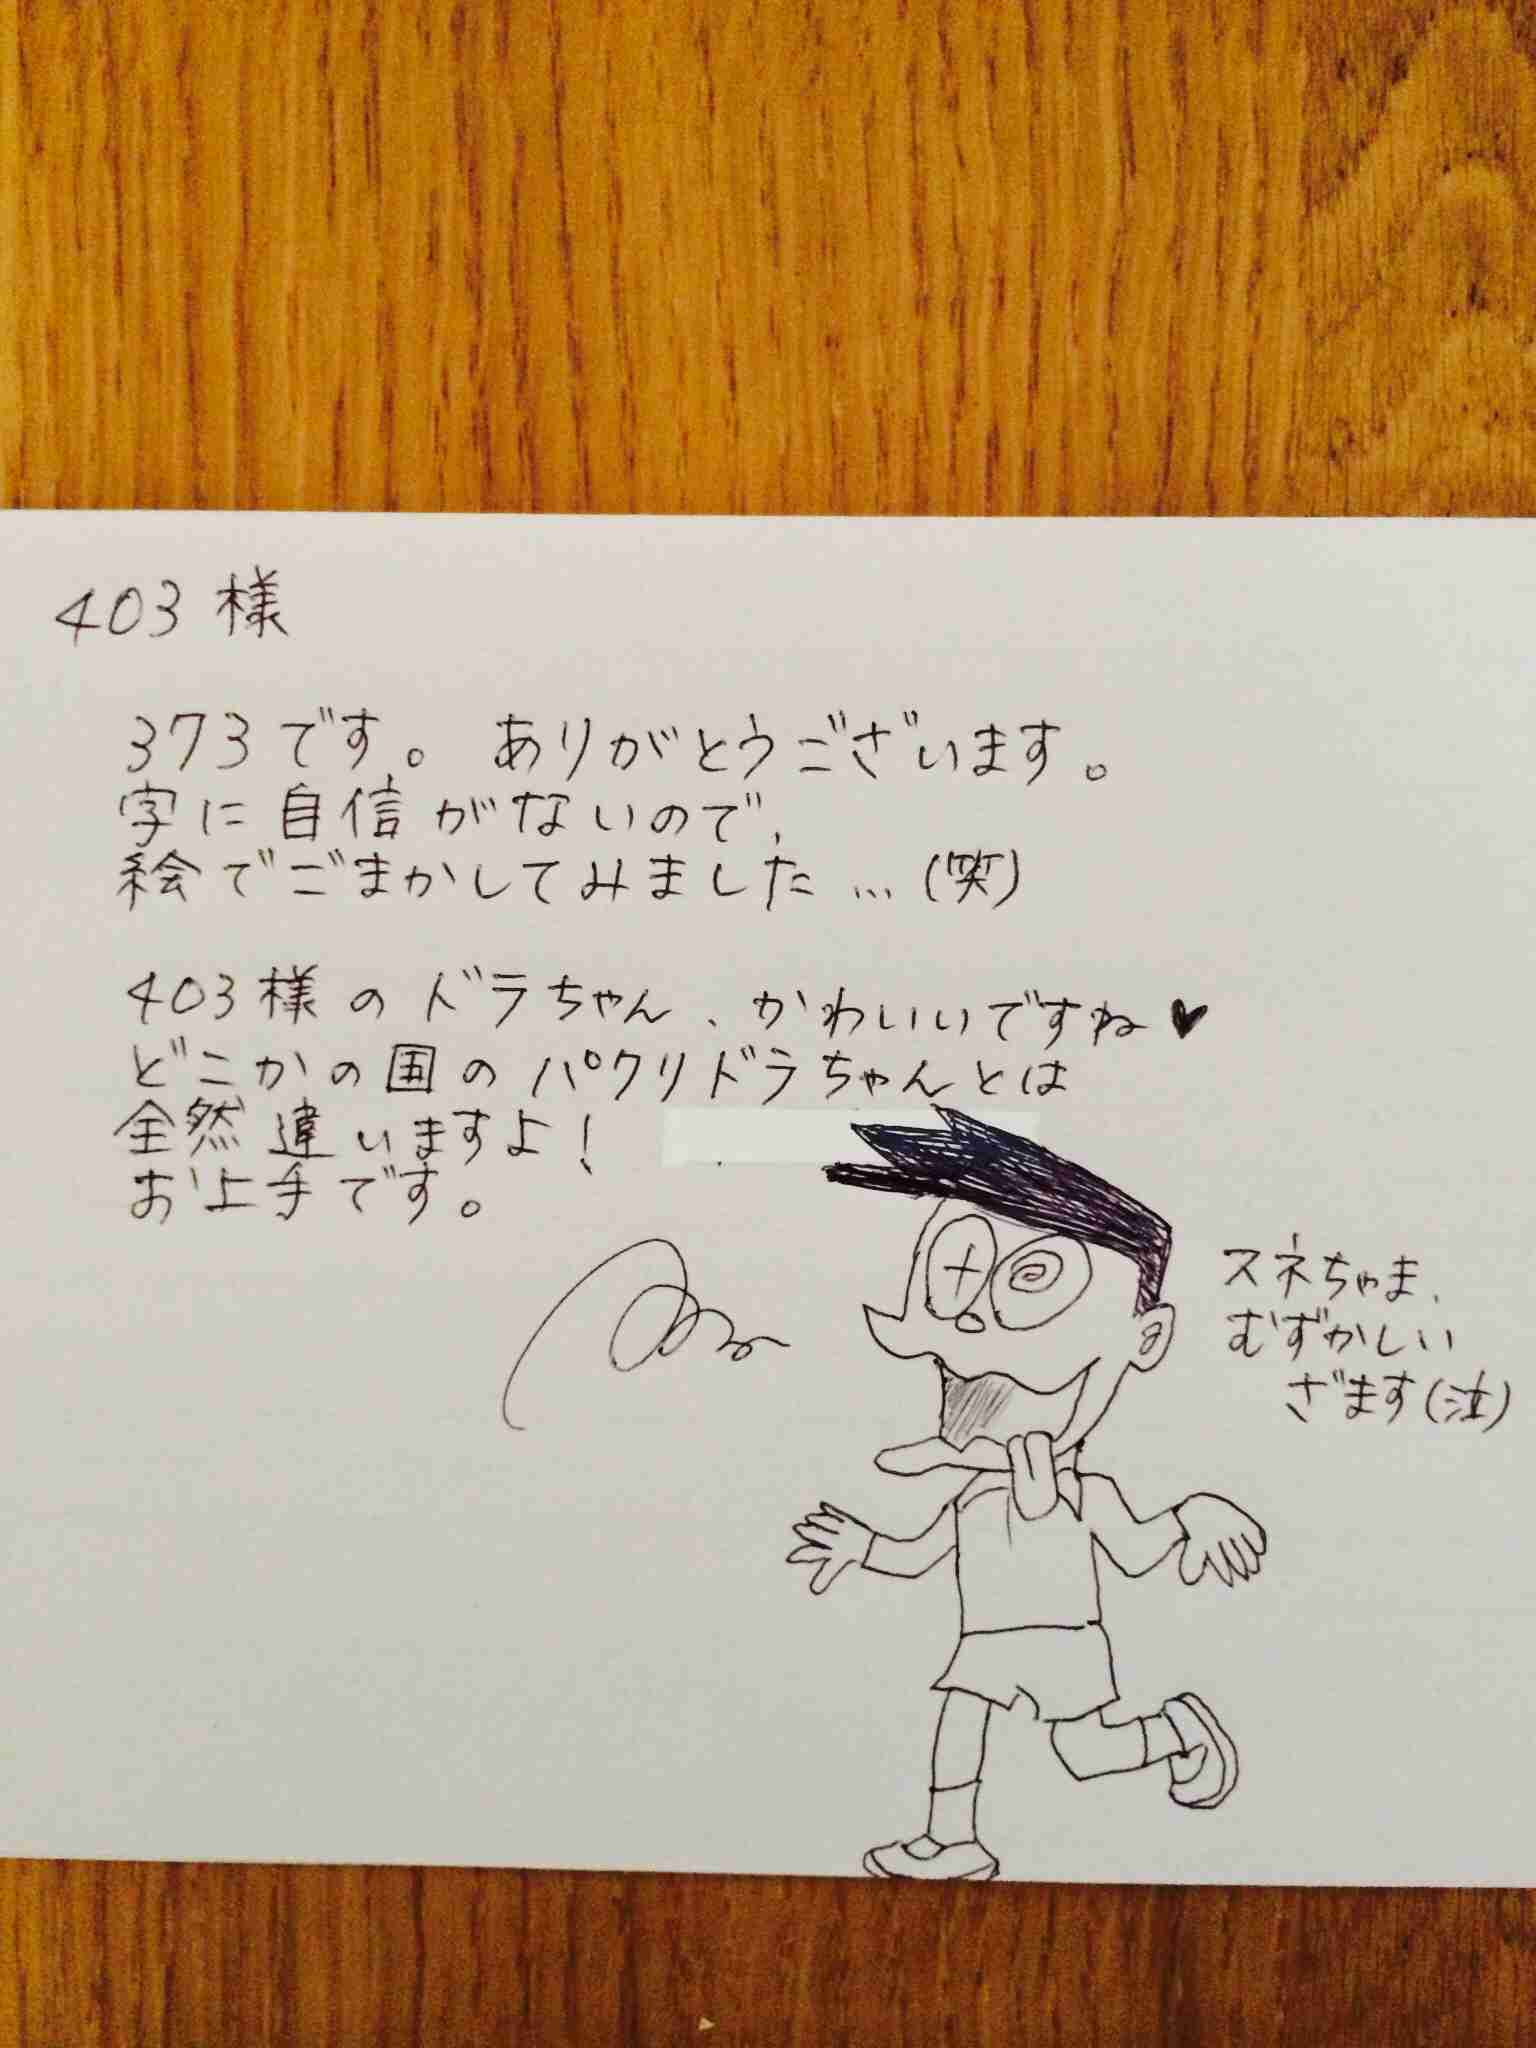 403様
373です。ありがとうございます。
字に自信がないので、
絵でごまかしてみました…(笑)
403様のドラちゃん、かわいいですね♥
どこかの国のパクリドラちゃんとは
全然違いますよ!
お上手です。
スネちゃま、
むずかしい
ざます(泣)